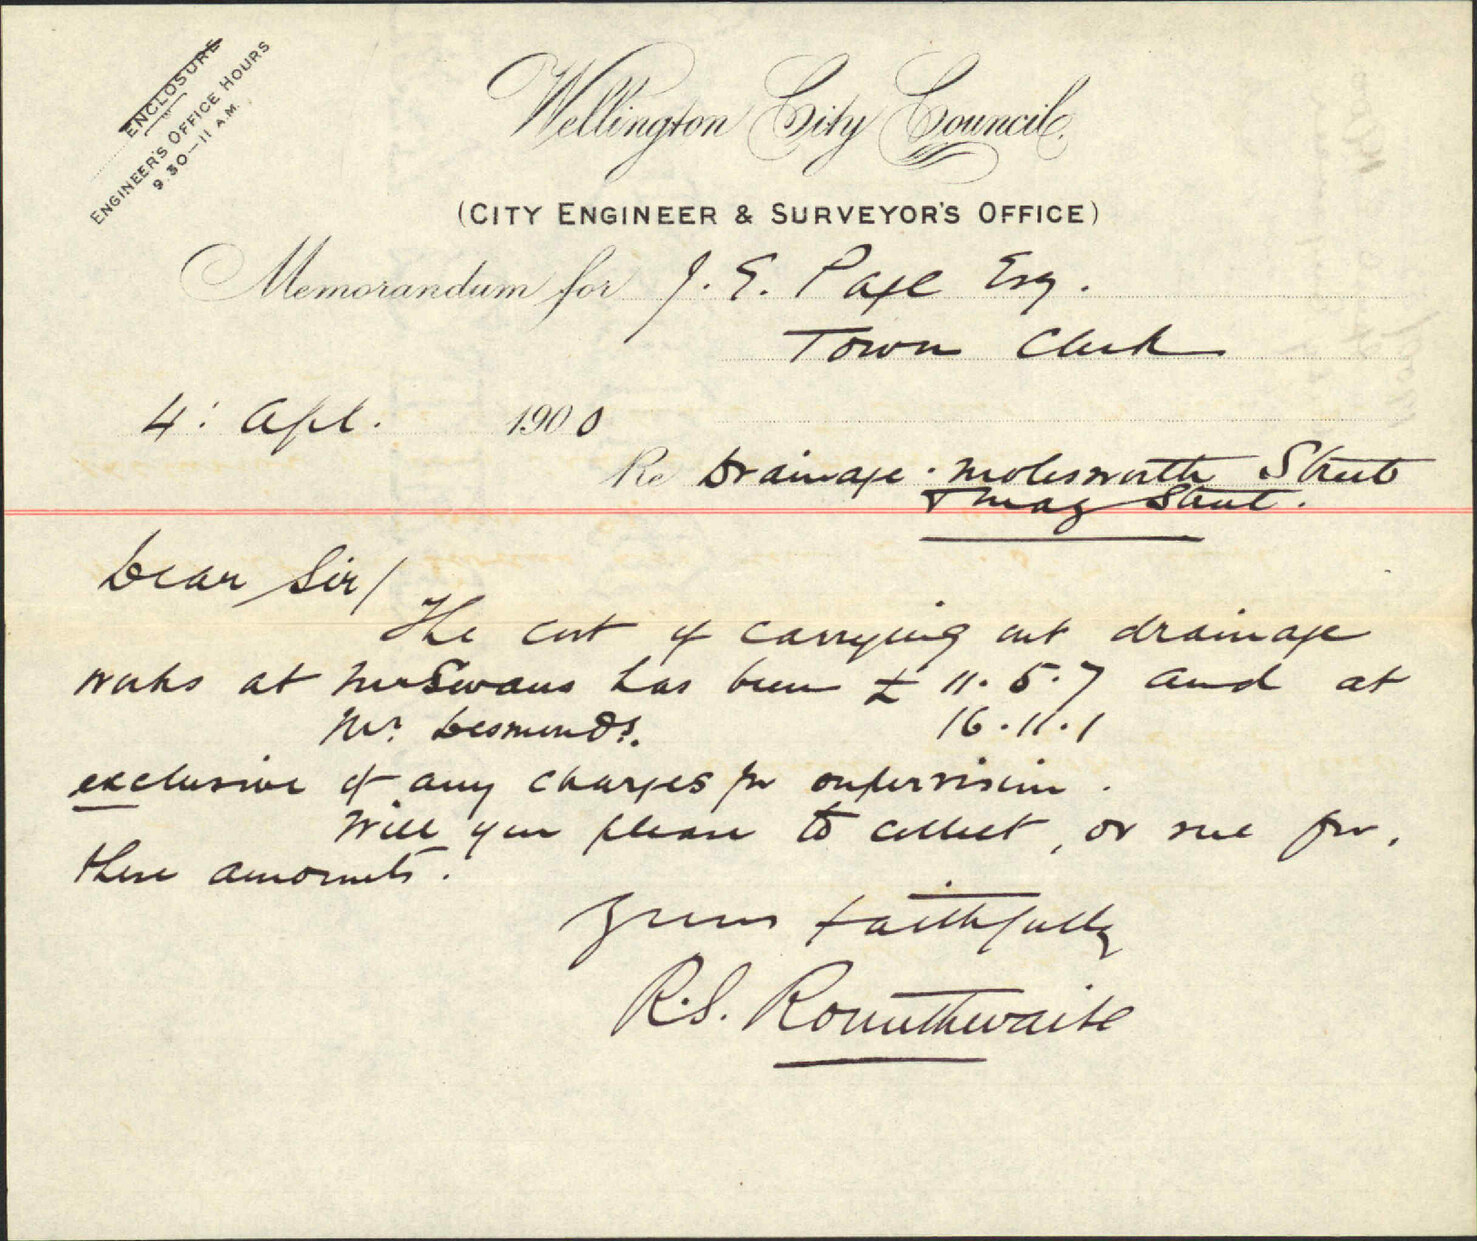 ENCLOSURE
ENGINEER'S OFFICE HOURS
9.30—11 A.M.
Wellington City Council.
(CITY ENGINEER & SURVEYOR'S OFFICE)
Memorandum for J. E. Page Esq.
Town Clerk
4: Apl. 1900
Re Drainage. Molesworth Street
& May Street.
Dear Sir/
The cost of carrying out drainage
works at Mr Swans has been £ 11.5.7 and at
Mr. Desmonds. 16.11.1
exclusive of any charges for supervision.
Will you please to collect, or sue for,
these amounts.
Yours faithfully
R.S. Rounthwaite